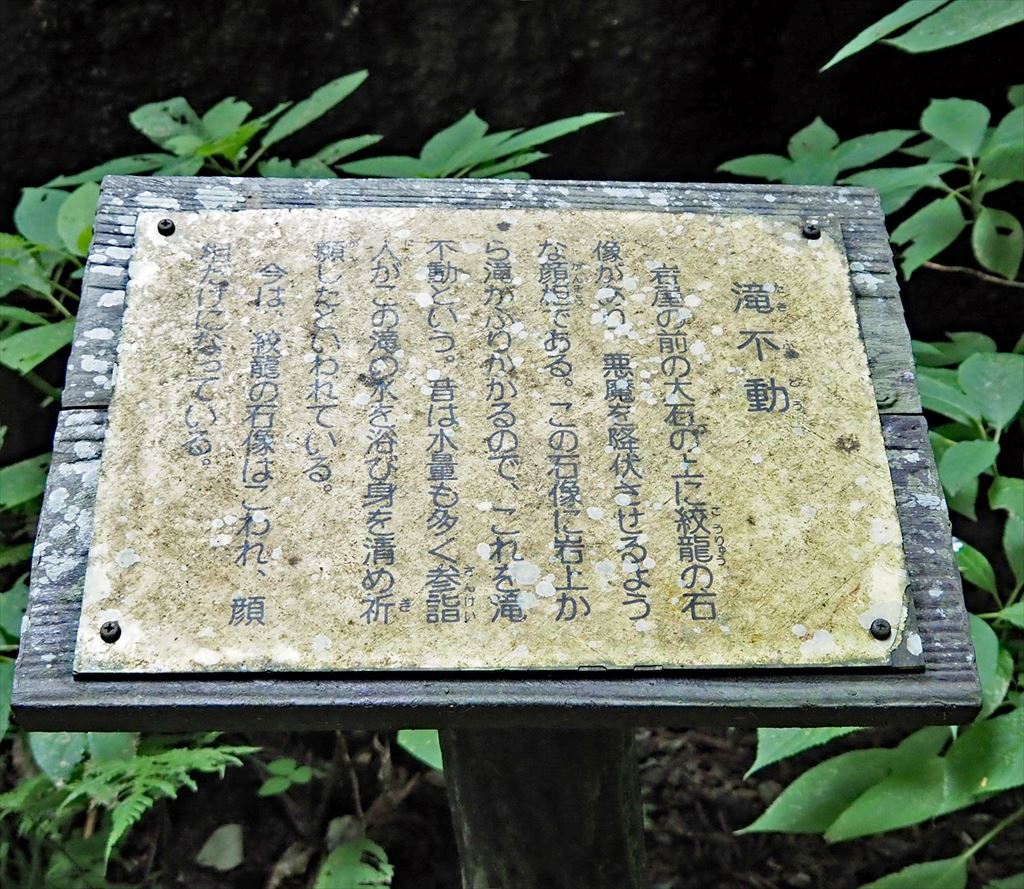 滝不動
岩屋の前の大石の上に絞龍の石
像があり、悪魔を降伏させるよう
な顔相である。この石像に岩上か
ら滝がふりかかるので、これを滝
不動という。昔は水量も多く参詣
人がこの滝の水を浴び身を清め祈
願したといわれている。
今は、絞龍の石像はこわれ、顔
相だけになっている。